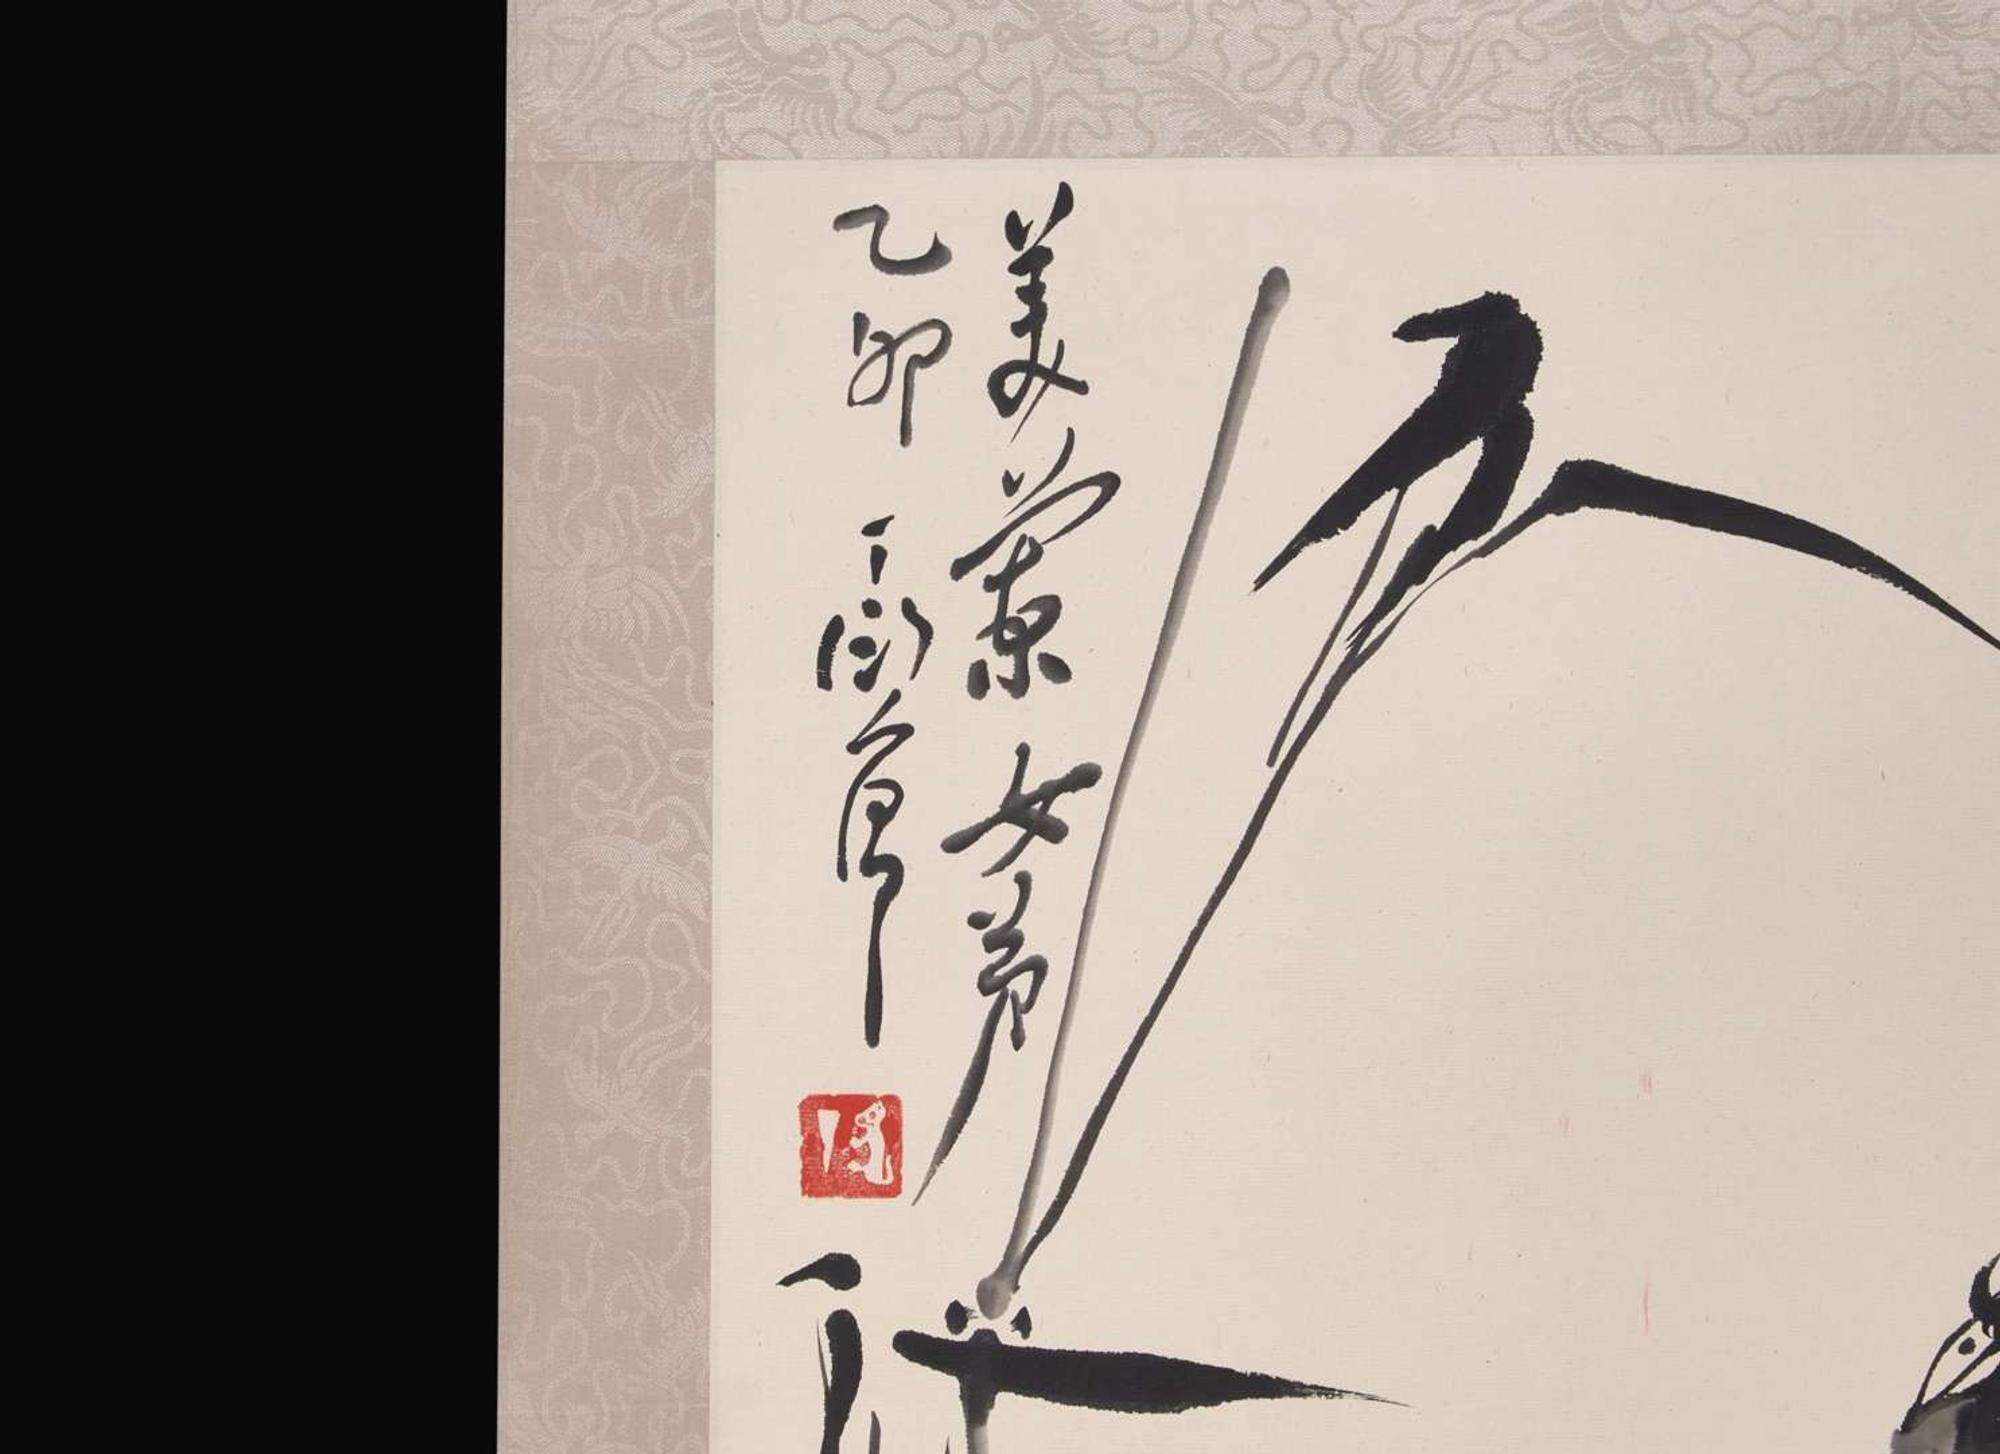 美蘭女弟
乙卯丁衍庸